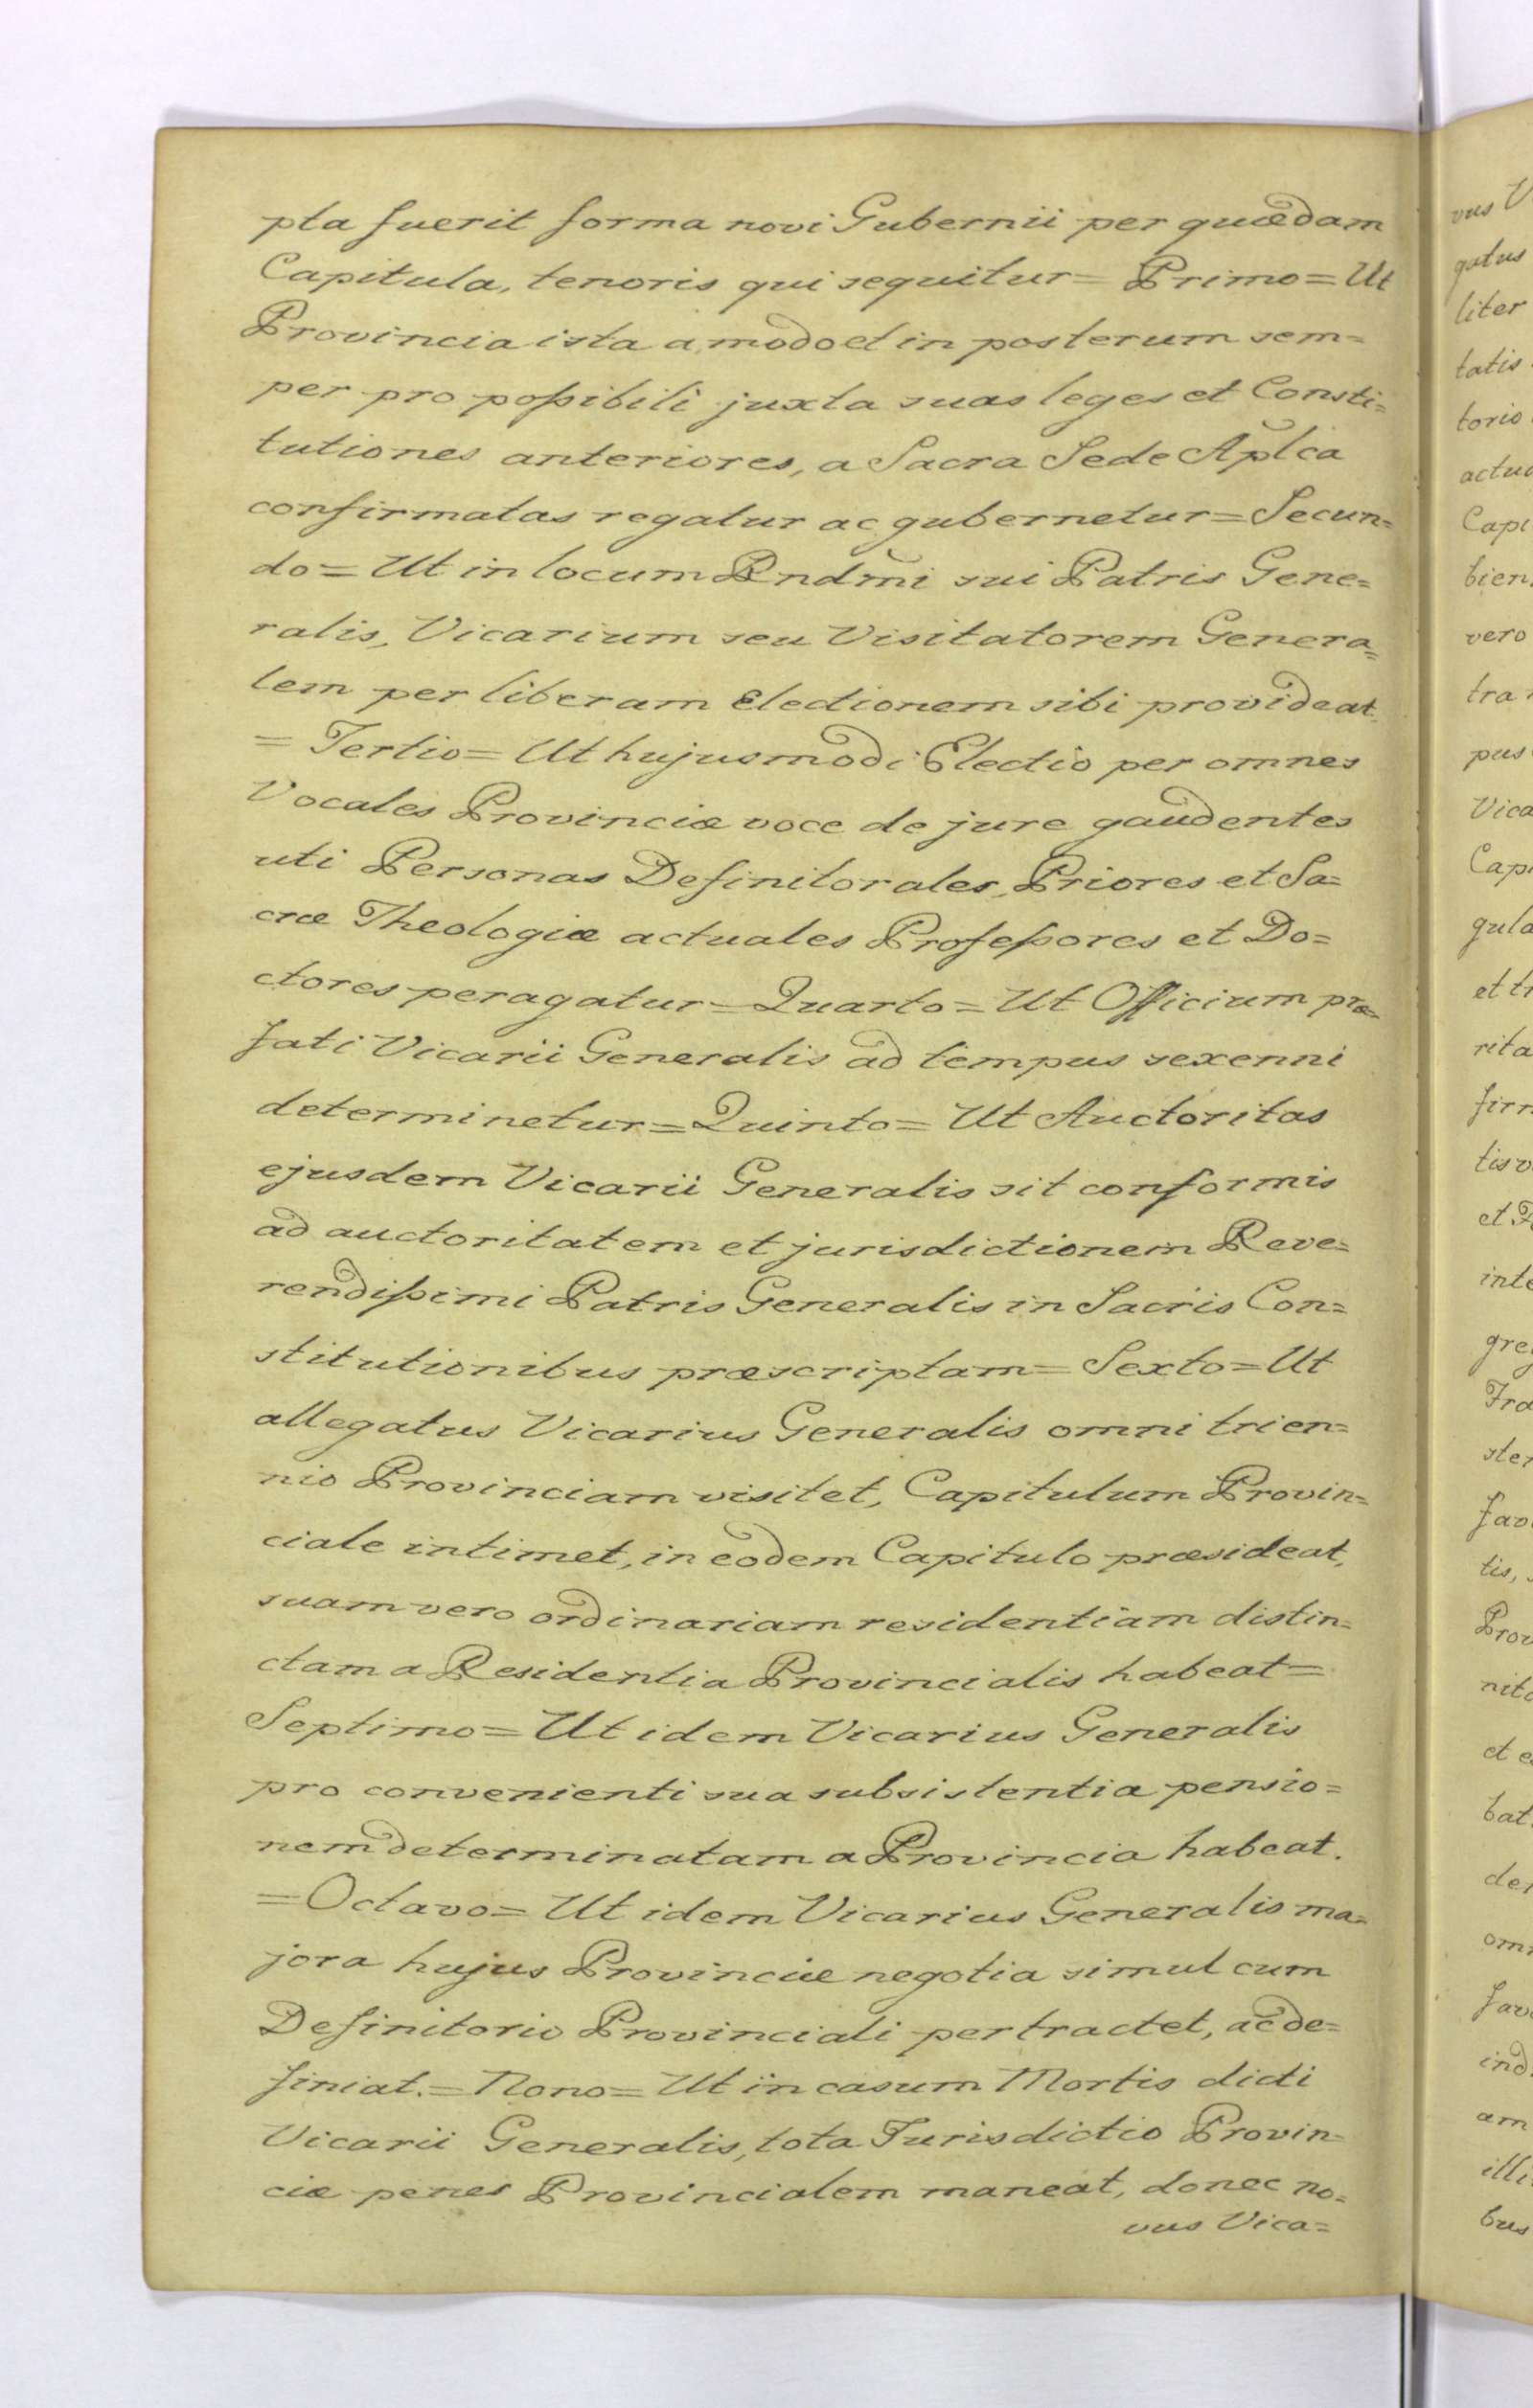 pta fuerit forma novi Gubernii per quædam
Capitula, tenoris qui sequitur= Primo= Ut
Provincia ista a modo et in posterum sem=
per pro poſsibili juxta suas leges et Consti=
tutiones anteriores, a Sacra Sede Aplca
confirmatas regatur ac gubernetur= Secun=
do= Ut in locum Rndmi sui Patris Gene=
ralis, Vicarium seu Visitatorem Genera=
lem per liberam Electionem sibi provideat.
= Tertio= Ut hujusmodi Electio per omnes
Vocales Provinciæ voce de jure gaudentes
uti Personas Definitorales, Priores et Sa=
cræ Theologiæ actuales Profeſsores et Do=
ctores peragatur= Quarto= Ut Officium præ=
fati Vicarii Generalis ad tempus sexenni
determinetur= Quinto= Ut Auctoritas
ejusdem Vicarii Generalis sit conformis
ad auctoritatem et jurisdictionem Reve=
rendiſsimi Patris Generalis in Sacris Con=
stitutionibus præscriptam= Sexto= Ut
allegatus Vicarius Generalis omni trien=
nio Provinciam visitet, Capitulum Provin=
ciale intimet, in eodem Capitulo præsideat,
suam vero ordinariam residentiam distin=
ctam a Residentia Provincialis habeat=
Septimo= Ut idem Vicarius Generalis
pro convenienti sua subsistentia pensio=
nem determinatam a Provincia habeat.
= Octavo= Ut idem Vicarius Generalis ma=
jora hujus Provinciæ negotia simul cum
Definitorio Provinciali pertractet, ac de=
finiat.= Nono= Ut in casum Mortis dicti
Vicarii Generalis, tota Jurisdictio Provin=
ciæ penes Provincialem maneat, donec no=
vus Vica=
vus V
gatus
liter
tatis
torio
actua
Capi
bien
vero
tra
pus
Vica
Capi
gula
et tr
rita
firm
tis v
et
inte
gre
Fra
ster
fav
tis,
Prov
nito
et e
bat
der
om
fav
ind
am
illi
bus